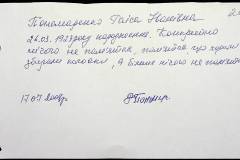 Пономаренко Таїса Іванівна
26.03.1927 року народження. Конкретно
нічого не пам'ятаю, пам'ятаю, що ходили
збирали колоски, а більше нічого не пам'ятаю
17.07.2008р.